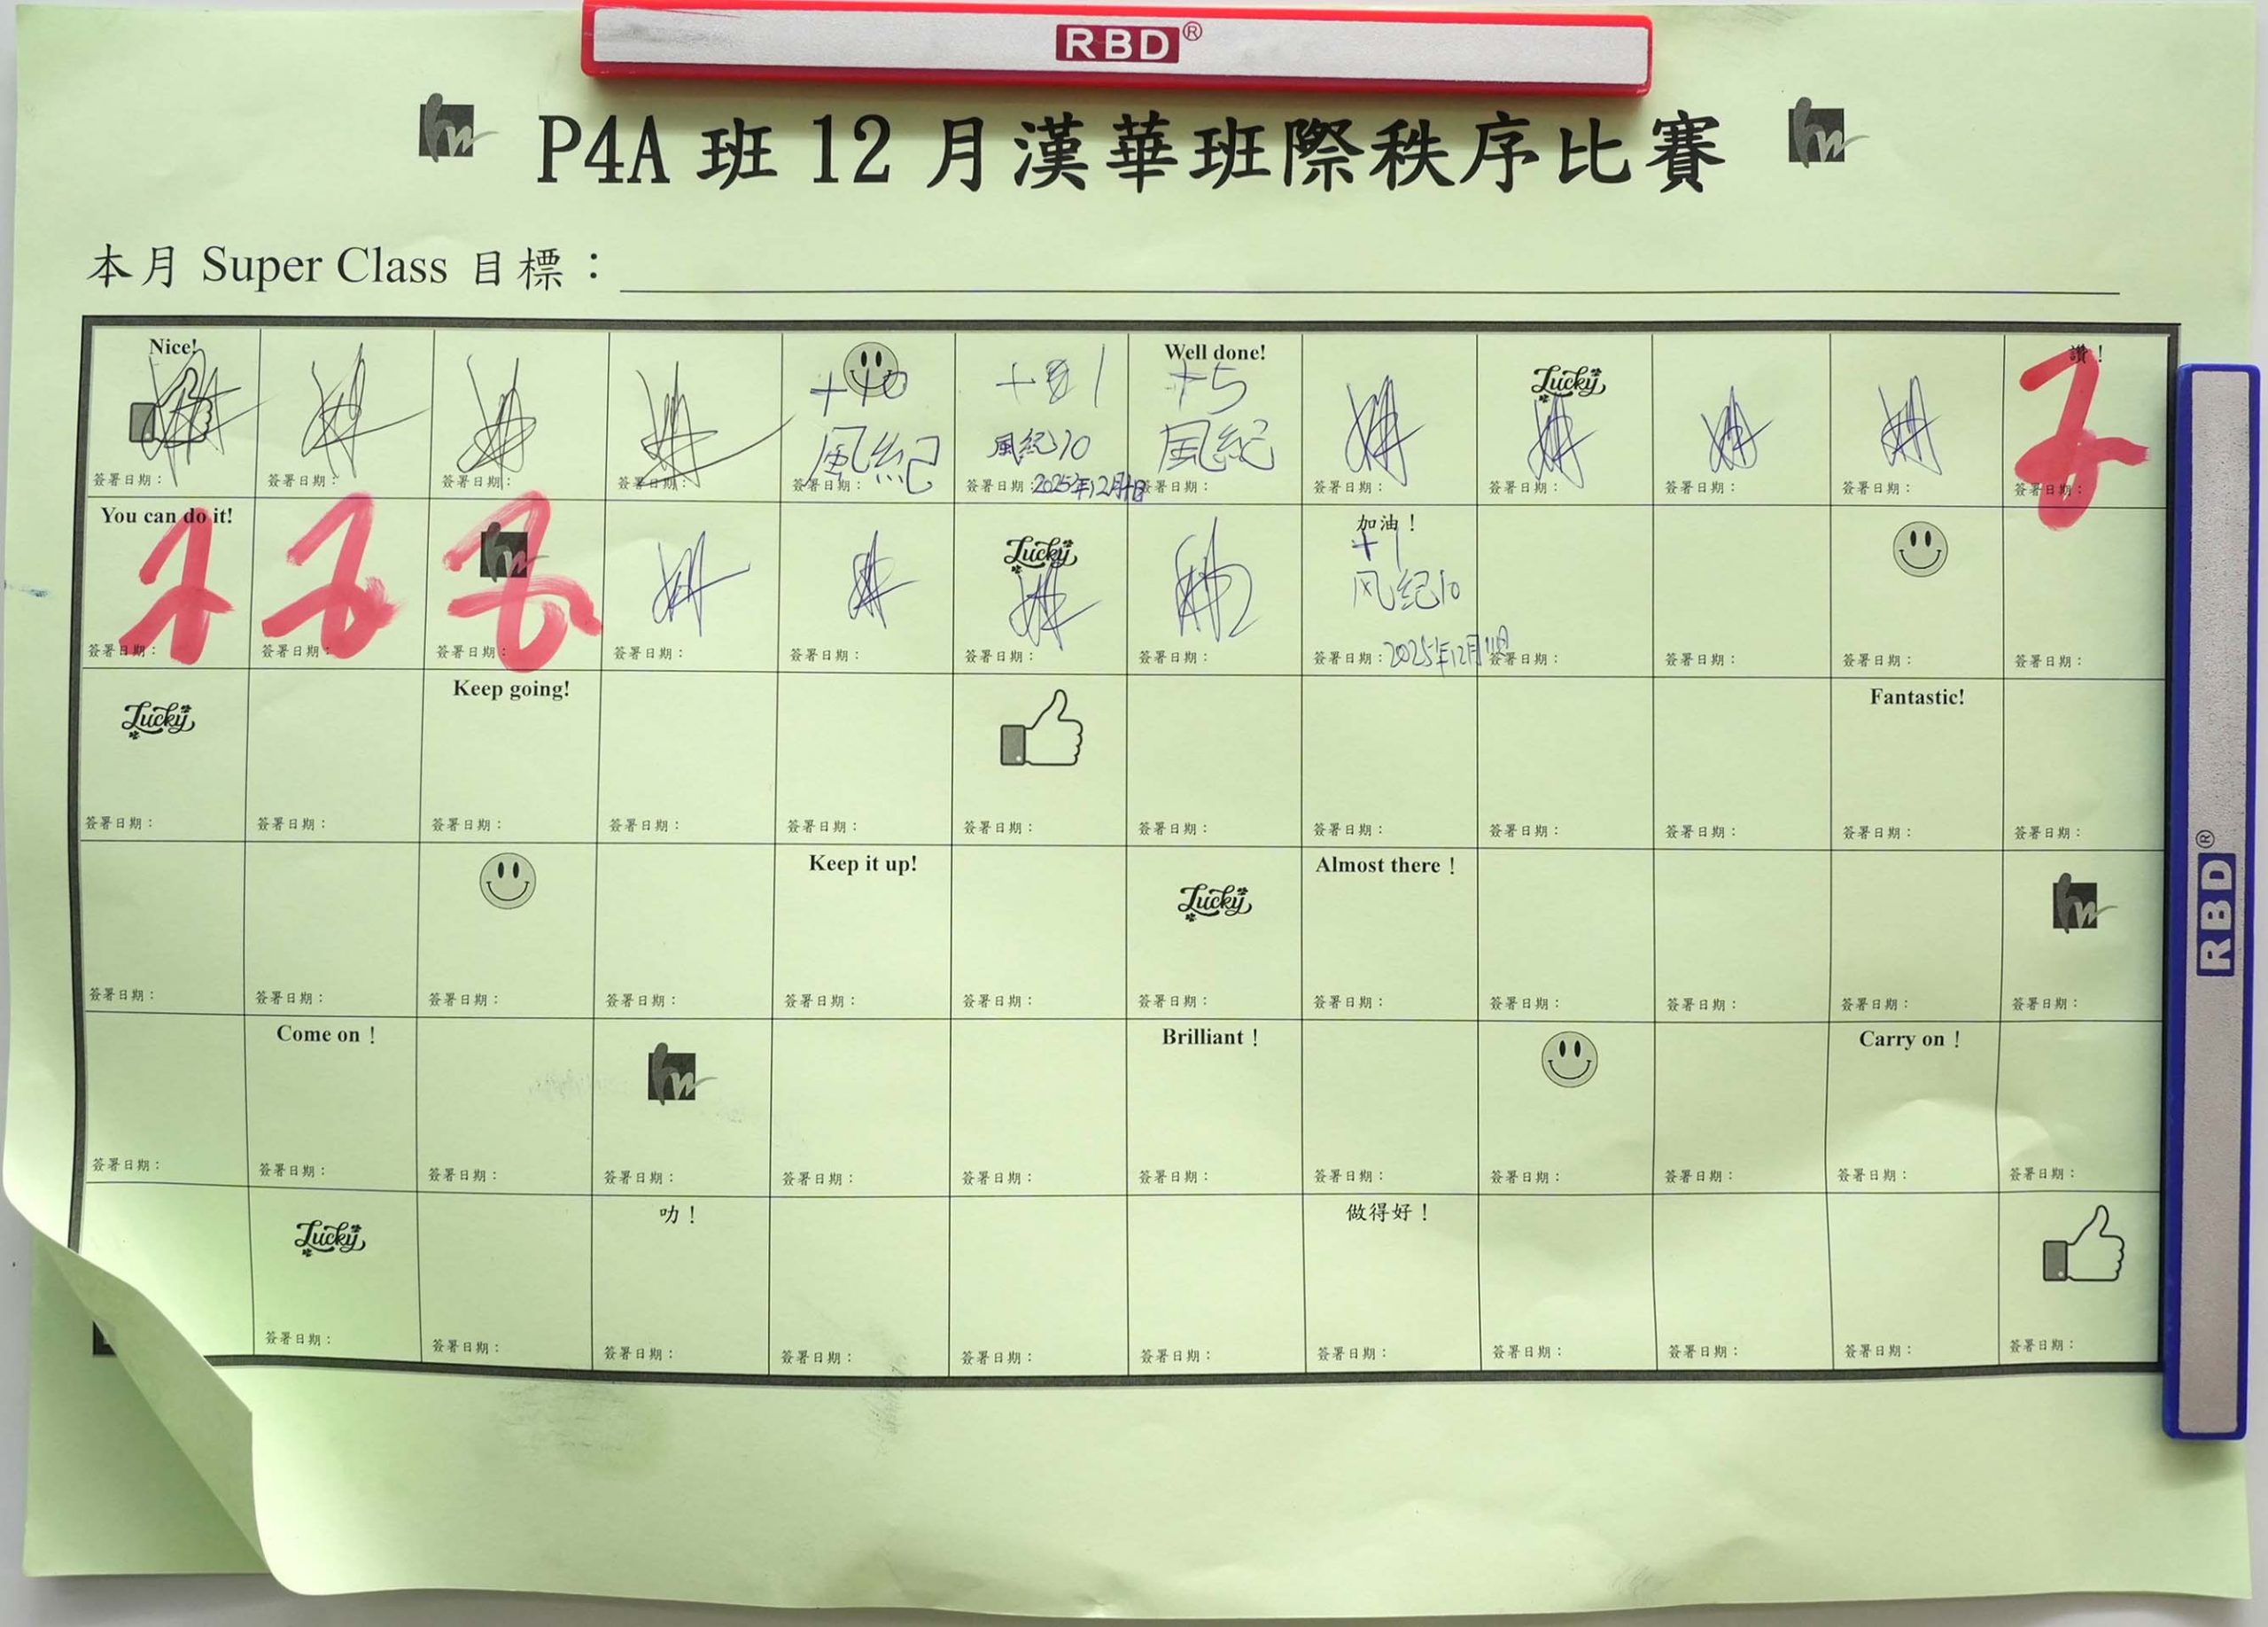 RBD®
P4A 班 12 月漢華班際秩序比賽
本月 Super Class 目標：
Nice!
Well done!
Lucky
讚！
+10
+1
+5
風紀
風紀10
風紀
簽署日期： 簽署日期： 簽署日期： 簽署日期： 簽署日期： 簽署日期：2025年12月 簽署日期： 簽署日期： 簽署日期： 簽署日期： 簽署日期： 簽署日期：
You can do it!
hw
Lucky
加油！
+1
风纪10
簽署日期： 簽署日期： 簽署日期： 簽署日期： 簽署日期： 簽署日期： 簽署日期： 簽署日期：2025年12月11日 簽署日期： 簽署日期： 簽署日期： 簽署日期：
Lucky
Keep going!
Fantastic!
簽署日期： 簽署日期： 簽署日期： 簽署日期： 簽署日期： 簽署日期： 簽署日期： 簽署日期： 簽署日期： 簽署日期： 簽署日期： 簽署日期：
Keep it up!
Lucky
Almost there！
hw
簽署日期： 簽署日期： 簽署日期： 簽署日期： 簽署日期： 簽署日期： 簽署日期： 簽署日期： 簽署日期： 簽署日期： 簽署日期： 簽署日期：
Come on！
hw
Brilliant！
Carry on！
簽署日期： 簽署日期： 簽署日期： 簽署日期： 簽署日期： 簽署日期： 簽署日期： 簽署日期： 簽署日期： 簽署日期： 簽署日期： 簽署日期：
Lucky
叻！
做得好！
簽署日期： 簽署日期： 簽署日期： 簽署日期： 簽署日期： 簽署日期： 簽署日期： 簽署日期： 簽署日期： 簽署日期： 簽署日期：
RBD®